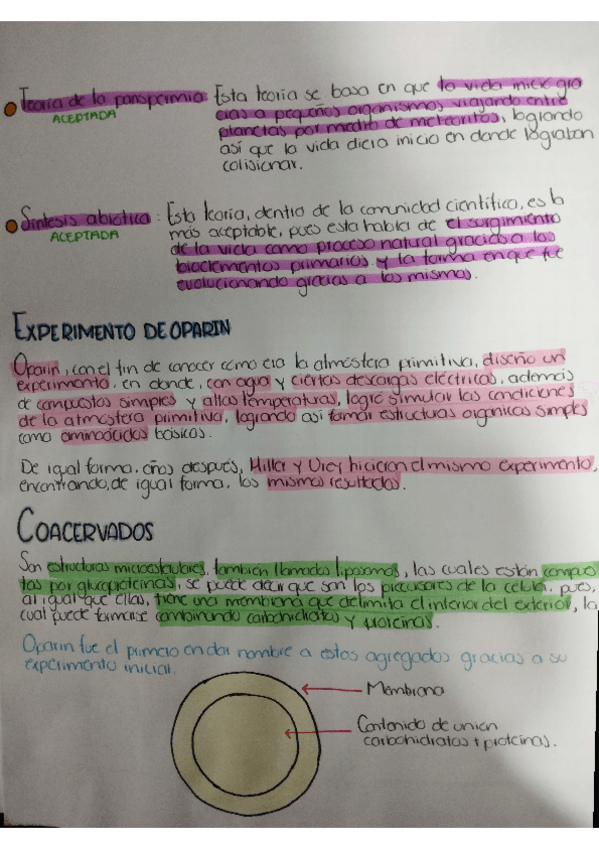 Teoría de la panspermia: Esta teoría se basa en que la vida inicie gra
ACEPTADA
cias a pequeños organismos viajando entre
planetas por medio de meteoritos, logrando
así que la vida diera inicio en donde lograban
colisionar.
Síntesis abiótica: Esta teoría, dentro de la comunidad científica, es la
ACEPTADA
más aceptable, pues esta habla de el surgimiento
de la vida como proceso natural gracias a los
bioelementos primarios y la forma en que fue
evolucionando gracias a los mismos.
EXPERIMENTO DE OPARIN
Oparin, con el fin de conocer como era la atmosfera primitiva, diseño un
experimento, en donde, con agua y ciertas descargas eléctricas, además
de compuestos simples y altas temperaturas, logró simular las condiciones
de la atmosfera primitiva, logrando así formar estructuras organicas simples
como aminoácidos básicos.
De igual forma, años después, Miller y Urey hicieron el mismo experimento,
encontrando, de igual forma, los mismos resultados.
COACERVADOS
Son estructuras microcelulares, tambien llamados liposomas, las cuales están compues
tas por glucoproteínas, se puede decir que son los precursores de la celula, pues,
al igual que ellas, tiene una membrana que delimita el interior del exterior, la
cual puede formarse combinando carbohidratos y proteínas.
Oparin fue el primero en dar nombre a estos agregados gracias a su
experimento inicial.
Membrana
Contenido de unión
carbohidratos + proteínas.